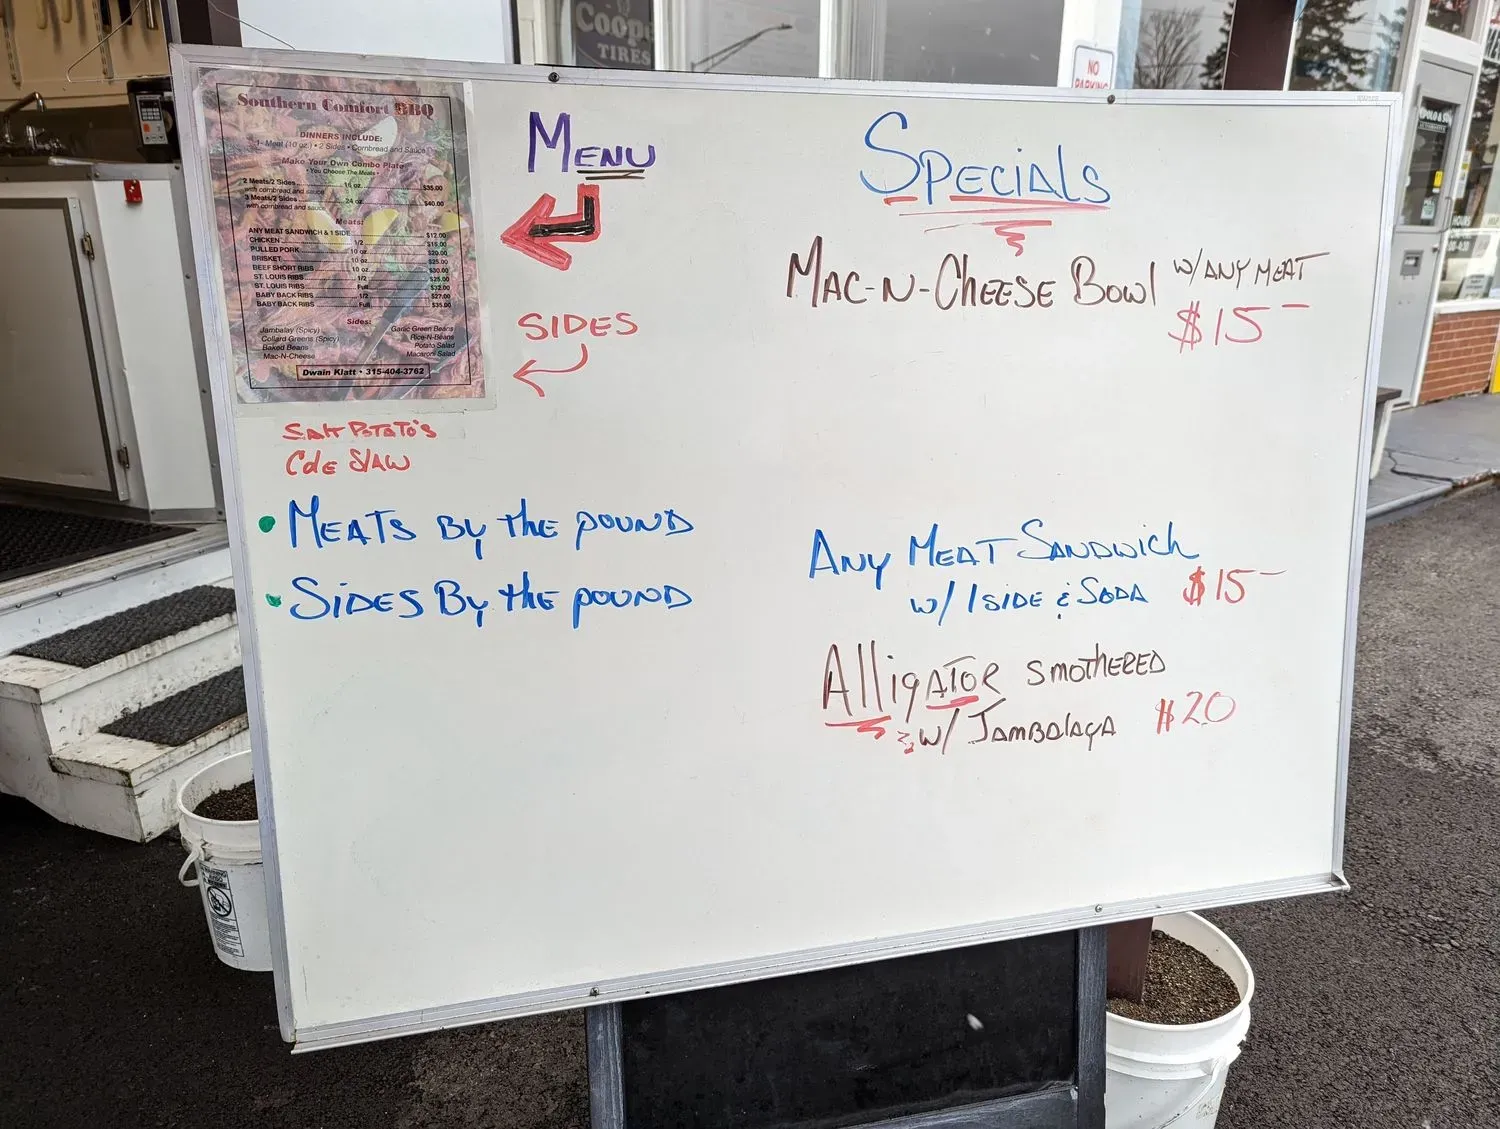 Southern Comfort BBQ
DINNERS INCLUDE:
1- Meat (10 oz.) • 2 Sides • Cornbread and Sauce
Make Your Own Combo Plate
• You Choose The Meats •
2 Meats/2 Sides 16 oz. $35.00
with cornbread and sauce
3 Meats/2 Sides 24 oz. $40.00
with cornbread and sauce
Meats:
ANY MEAT SANDWICH & 1 SIDE $12.00
CHICKEN 1/2 $15.00
PULLED PORK 10 oz. $20.00
BRISKET 10 oz. $25.00
BEEF SHORT RIBS 10 oz. $30.00
ST. LOUIS RIBS 1/2 $25.00
ST. LOUIS RIBS Full $32.00
BABY BACK RIBS 1/2 $27.00
BABY BACK RIBS Full $35.00
Sides:
Jambalay (Spicy) Garlic Green Beans
Collard Greens (Spicy) Rice-N-Beans
Baked Beans Potato Salad
Mac-N-Cheese Macaroni Salad
Dwain Klatt • 315-404-3762
MENU
SIDES
SALT POTATO'S
COLE SLAW
• MEATS By the pOUND
• SIDES By the pOUND
SPECIALS
MAC-N-CHEESE BOWl W/ANY MEAT
$15-
ANY MEAT SANDWICH
w/ 1 SIDE & SODA $15-
AlligATOR SMOTHERED
w/ JAMBALAYA $20
Coope
TIRES
NO
PARKING